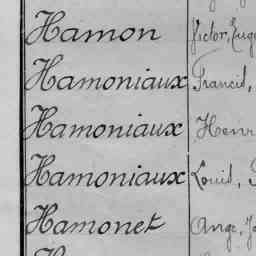 Hamon Victor, Eug
Hamoniaux Francis,
Hamoniaux Henr
Hamoniaux Louis,
Hamonet Ange, J